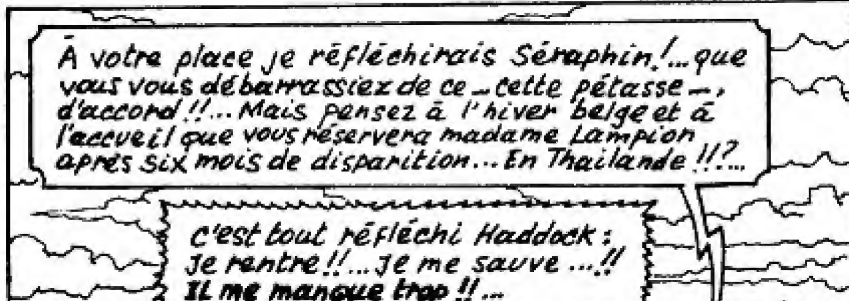 À votre place je réfléchirais Séraphin!...que
vous vous débarrassiez de ce _ cette pétasse _,
d'accord!!... Mais pensez à l'hiver belge et à
l'accueil que vous réservera madame Lampion
après six mois de disparition... En Thaïlande!!?...
c'est tout réfléchi Haddock:
Je rentre!!...Je me sauve...!!
IL me manque trop!!...